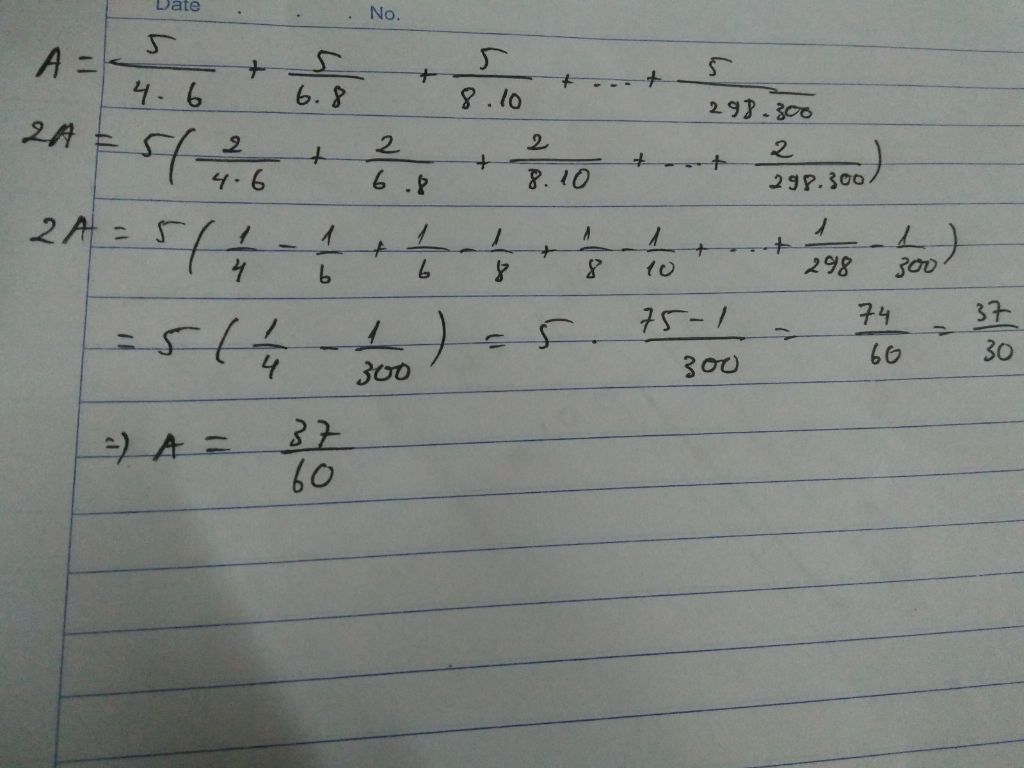 Date . . . No.
A = 5/(4.6) + 5/(6.8) + 5/(8.10) + ... + 5/(298.300)
2A = 5(2/(4.6) + 2/(6.8) + 2/(8.10) + ... + 2/(298.300))
2A = 5(1/4 - 1/6 + 1/6 - 1/8 + 1/8 - 1/10 + ... + 1/298 - 1/300)
= 5(1/4 - 1/300) = 5 . (75-1)/300 = 74/60 = 37/30
=> A = 37/60